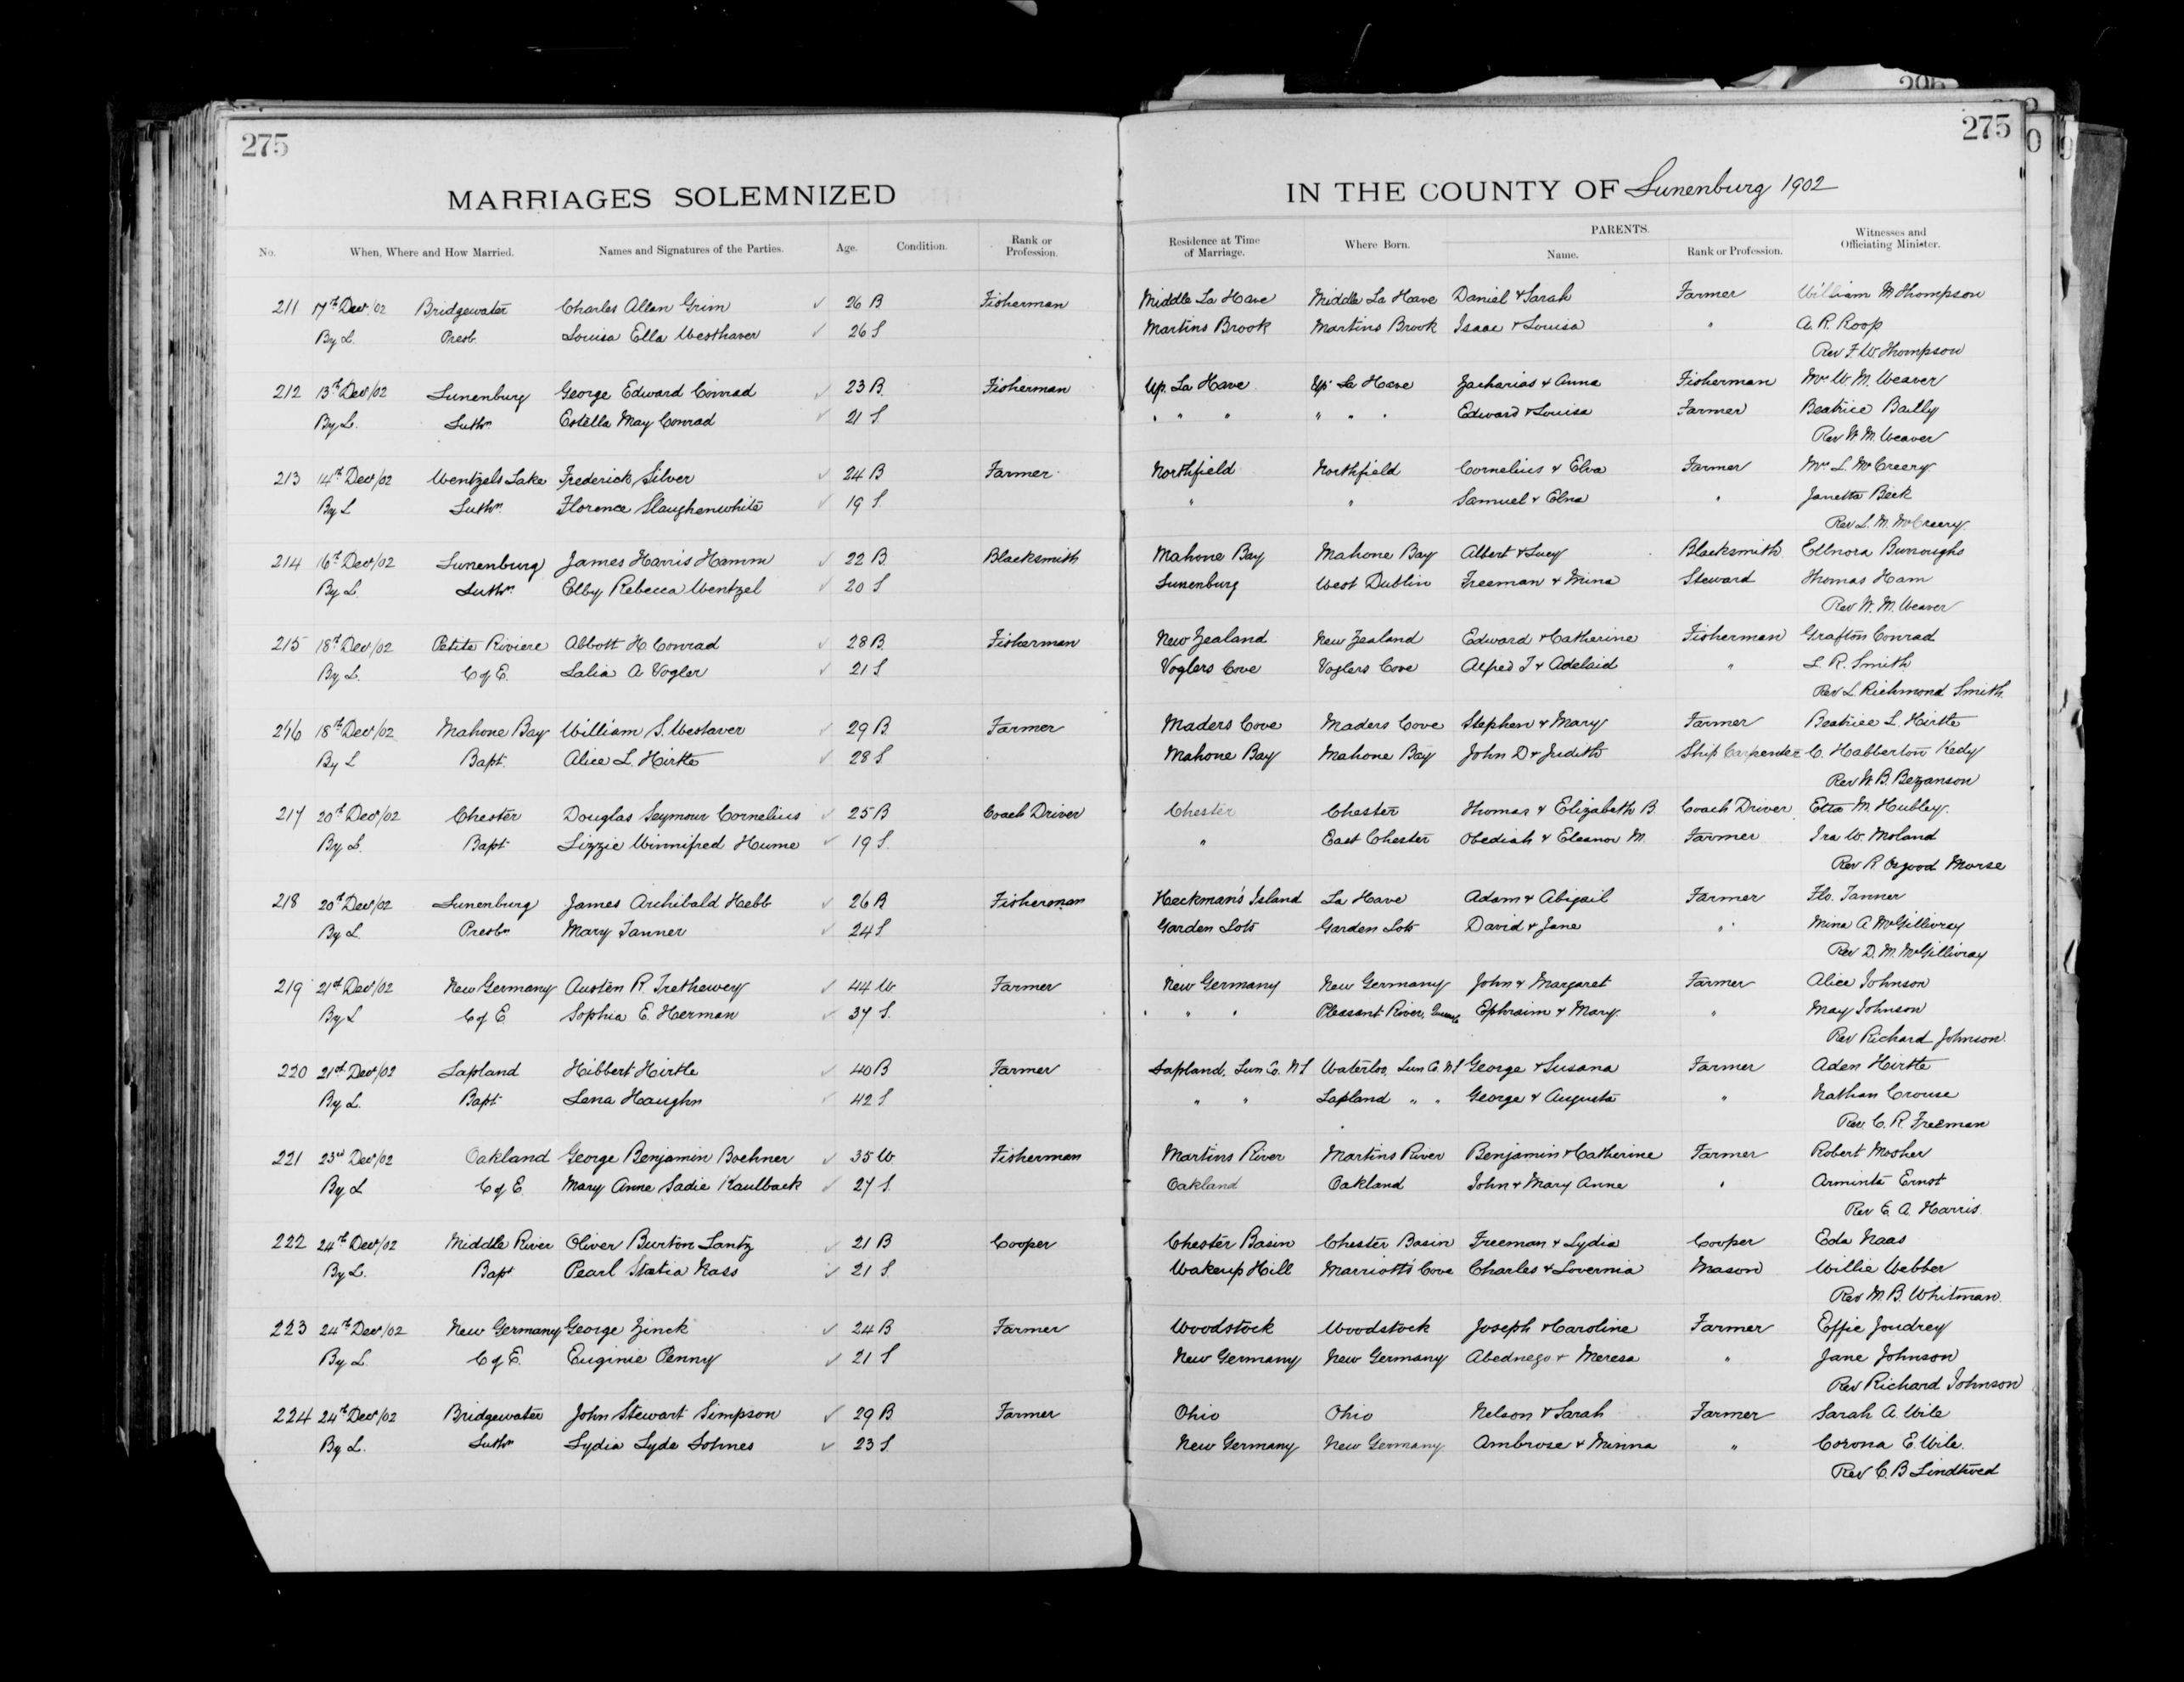 295
275
275
0
MARRIAGES SOLEMNIZED IN THE COUNTY OF Lunenburg 1902
No. When, Where and How Married. Names and Signatures of the Parties. Age. Condition. Rank or Profession. Residence at Time of Marriage. Where Born. PARENTS. Name. Rank or Profession. Witnesses and Officiating Minister.
211 17th Decr/02 Bridgewater Charles Allan Grim ✓ 26 B Fisherman Middle La Have Middle La Have Daniel & Sarah Farmer William M Thompson
By L. Presb. Louisa Ella Westhaver ✓ 26 S Martins Brook Martins Brook Isaac & Louisa " A. R. Roop
Rev F. W. Thompson
212 13th Decr/02 Lunenburg George Edward Conrad ✓ 23 B. Fisherman Up. La Have Up. La Have Zacharias & Anna Fisherman Mrs W. M. Weaver
By L. Luthn. Estella May Conrad ✓ 21 S. " " " " " " Edward & Louisa Farmer Beatrice Bailly
Rev W. M. Weaver
213 14th Decr/02 Wentzels Lake Frederick Silver ✓ 24 B Farmer Northfield Northfield Cornelius & Elva Farmer Mrs L. McCreery
By L Luthn. Florence Slaughenwhite ✓ 19 S. " " Samuel & Elna " Janetta Beck
Rev L. M. McCreery
214 16th Decr/02 Lunenburg James Harris Hamm ✓ 22 B. Blacksmith Mahone Bay Mahone Bay Albert & Lucy Blacksmith Ellnora Burroughs
By L. Luthn. Elby Rebecca Wentzel ✓ 20 S Lunenburg West Dublin Freeman & Mina Steward Thomas Ham
Rev W. M. Weaver
215 18th Decr/02 Petite Riviere Abbott H. Conrad ✓ 28 B. Fisherman New Zealand New Zealand Edward & Catherine Fisherman Grafton Conrad
By L. C of E. Lalia A Vogler ✓ 21 S Voglers Cove Voglers Cove Alfred T & Adelaid " L. R. Smith
Rev L. Richmond Smith.
216 18th Decr/02 Mahone Bay William S. Westaver ✓ 29 B Farmer Maders Cove Maders Cove Stephen & Mary Farmer Beatrice L. Hirtle
By L Bapt. Alice L. Hirtle ✓ 28 S Mahone Bay Mahone Bay John D & Judith Ship Carpenter C. Habberton Kedy
Rev W. B. Bezanson
217 20th Decr/02 Chester Douglas Seymour Cornelius ✓ 25 B Coach Driver Chester Chester Thomas & Elizabeth B. Coach Driver Etta M. Hubley.
By L. Bapt Lizzie Winnifred Hume ✓ 19 S. " East Chester Obediah & Eleanor M. Farmer Ira W. Moland
Rev R Osgood Morse
218 20th Decr/02 Lunenburg James Archibald Hebb ✓ 26 B Fisherman Heckman's Island La Have Adam & Abigail Farmer Flo. Tanner
By L. Presbn Mary Tanner ✓ 24 S. Garden Lots Garden Lots David & Jane " Mina A McGillivray
Rev D. M. McGillivray
219 21st Decr/02 New Germany Austen R. Trethewey ✓ 44 W. Farmer New Germany New Germany John & Margaret Farmer Alice Johnson
By L C of E Sophia E. Herman ✓ 37 S. " " " Pleasant River, Ephraim & Mary. " May Johnson
Rev Richard Johnson.
220 21st Decr/02 Lapland Hibbert Hirtle ✓ 40 B Farmer Lapland, Lun Co. N S Waterloo, Lun Co. N S George & Susana Farmer Aden Hirtle
By L. Bapt. Lena Haughn ✓ 42 S. " " Lapland " " George & Augusta " Nathan Crouse
Rev. C. R. Freeman
221 23rd Decr/02 Oakland George Benjamin Boehner ✓ 35 W. Fisherman Martins River Martins River Benjamin & Catherine Farmer Robert Mosher
By L C of E. Mary Anne Sadie Kaulback ✓ 27 S. Oakland Oakland John & Mary Anne " Arminta Ernst
Rev E. A. Harris.
222 24th Decr/02 Middle River Oliver Burton Lantz ✓ 21 B Cooper Chester Basin Chester Basin Freeman & Lydia Cooper Eda Naas
By L. Bapt Pearl Statia Nass ✓ 21 S. Wakeup Hill Marriotts Cove Charles & Lovernia Mason Willie Webber
Rev M. B. Whitman.
223 24th Decr/02 New Germany George Zinck ✓ 24 B Farmer Woodstock Woodstock Joseph & Caroline Farmer Effie Joudrey
By L. C of E. Euginie Penny ✓ 21 S New Germany New Germany Abednego & Meresa " Jane Johnson
Rev Richard Johnson
224 24th Decr/02 Bridgewater John Stewart Simpson ✓ 29 B Farmer Ohio Ohio Nelson & Sarah Farmer Sarah A. Wile
By L. Luthn Lydia Lyde Sohnes ✓ 23 S. New Germany New Germany Ambrose & Minna " Corona E. Wile.
Rev C. B Lindtwed